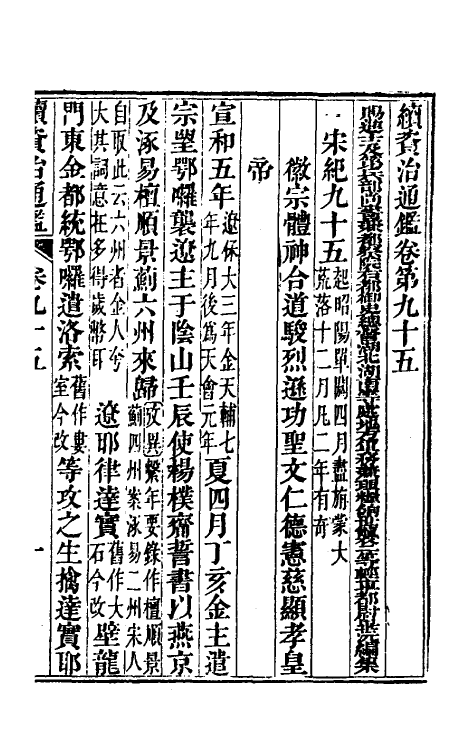 續資治通鑑卷第九十五
賜進士及第兵部尚書兼都察院右都御史總督湖北湖南等處地方軍務兼理糧餉世襲二等輕車都尉畢沅編集
宋紀九十五起昭陽單閼四月盡旃蒙大荒落十二月凡二年有奇
徽宗體神合道駿烈遜功聖文仁德憲慈顯孝皇
帝
宣和五年遼保大三年金天輔七年九月後爲天會元年夏四月丁亥金主遣
宗望鄂囉襲遼主于陰山壬辰使楊樸齎誓書以燕京
及涿易檀順景薊六州來歸攷異繫年要錄作檀順景薊四州案涿易二州宋人
自取此云六州者金人兮大其詞意在多得歲幣耳遼耶律達實舊作大石今改壁龍
門東金都統鄂囉遣洛索舊作婁室今改等攻之生擒達實耶
續資治通鑑 卷九十五 一